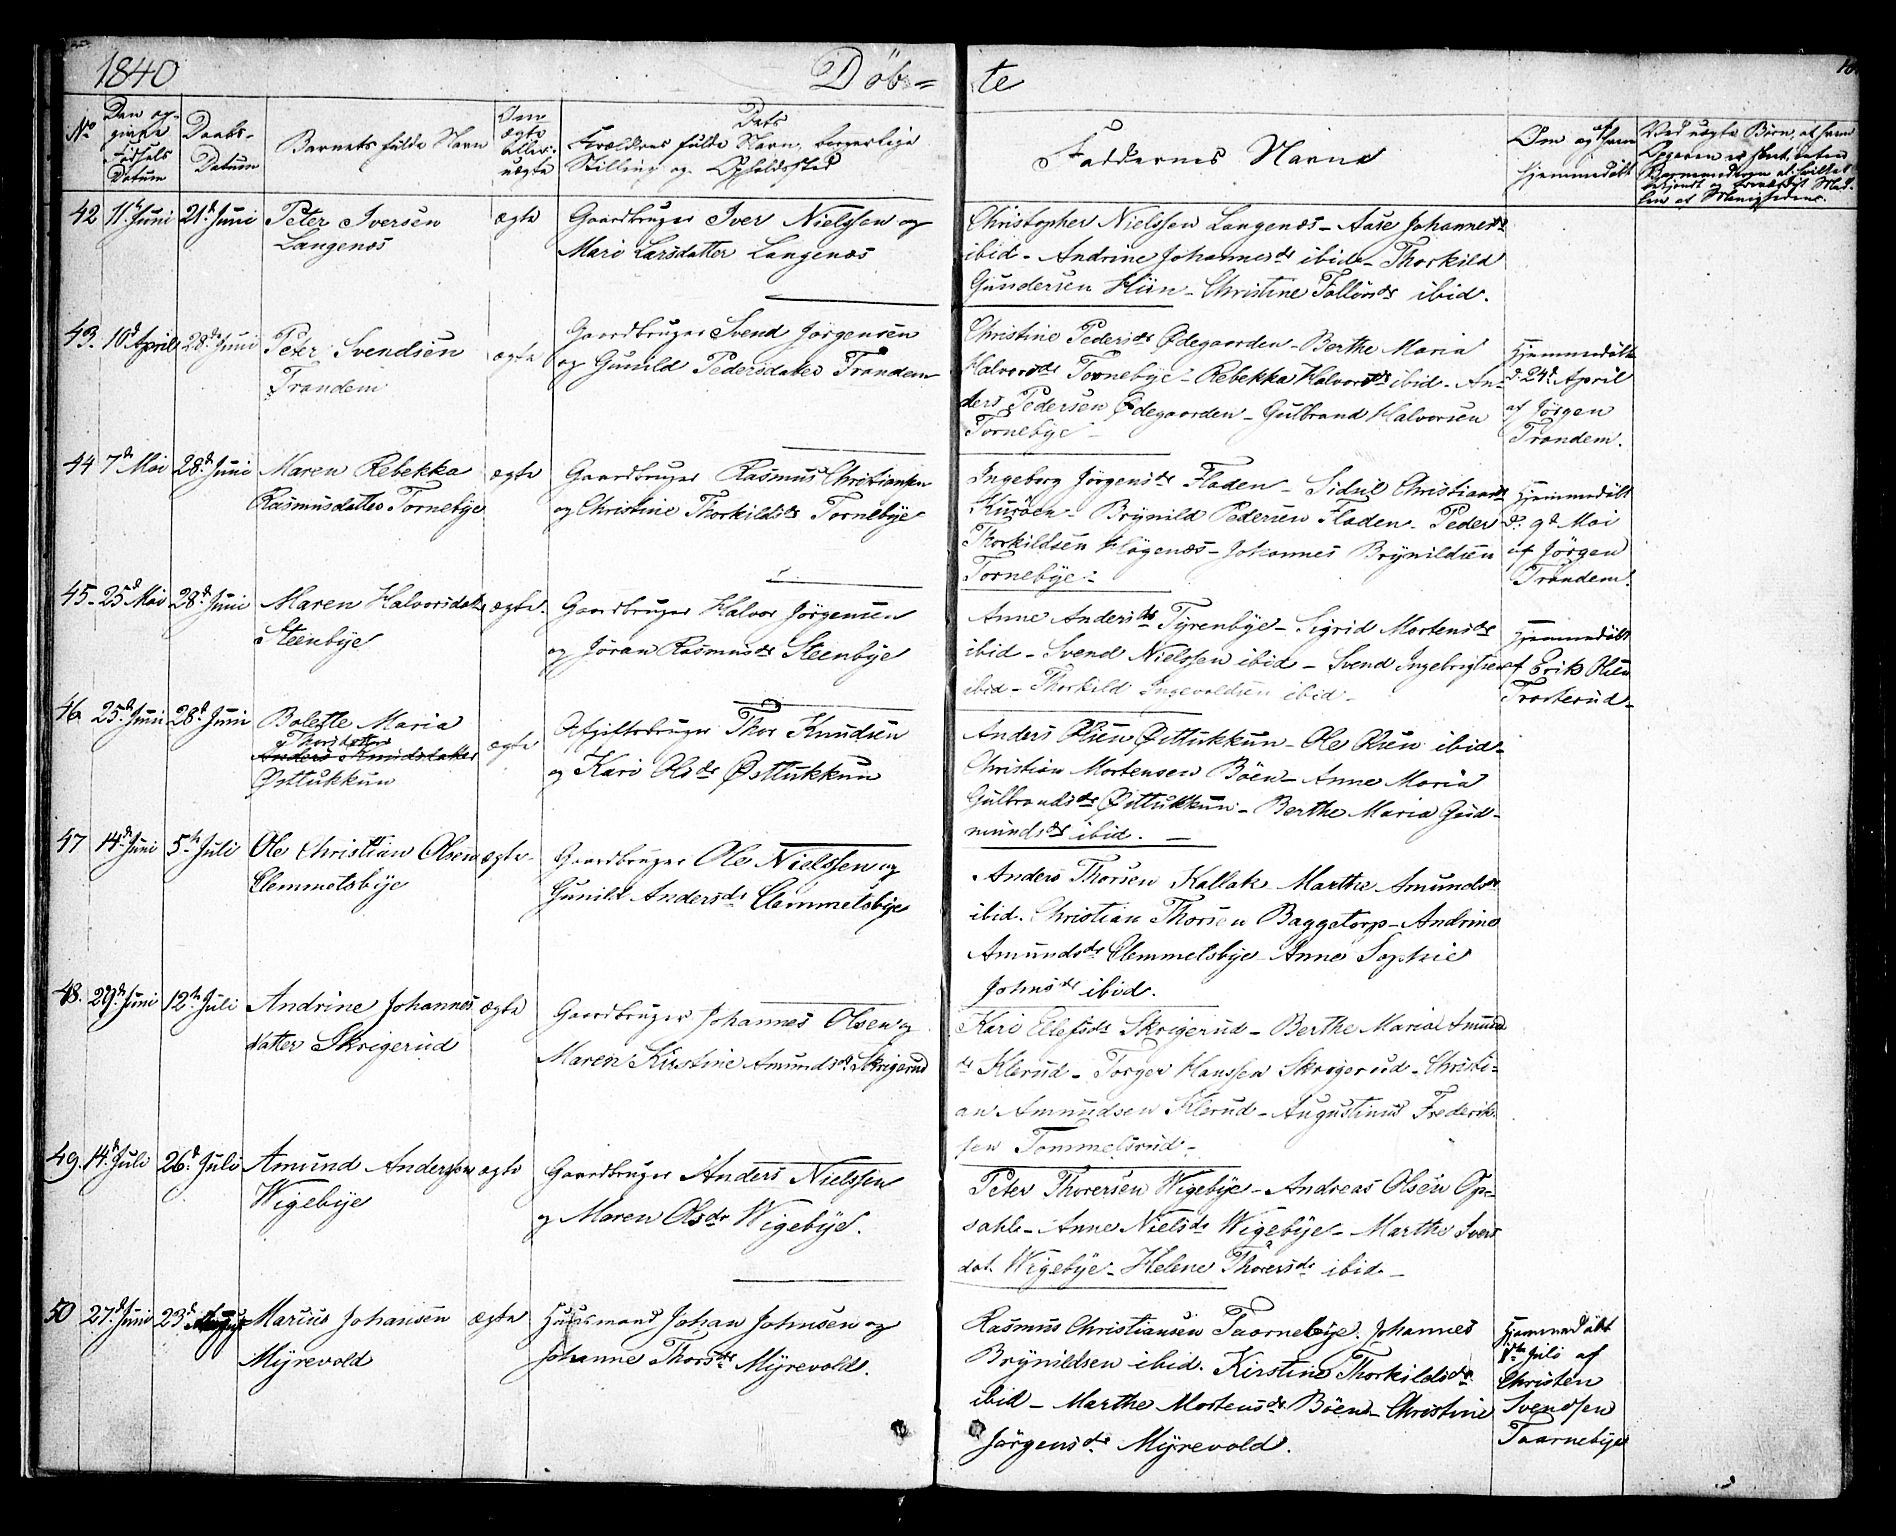 1840
Döb=
te
No
Den op-
givne
Födsels
Datum
Daabs-
Datum
Barnets fulde Navn
Om
ægte
eller
uægte
Dets
Forældres fulde Navn, borgerlige
Stilling og Opholdssted
Faddernes Navne
Om og af hvem
hjemmedöbt
Ved uægte Börn, at hvem
42 11te Juni 21de Juni Peter Iversen ægte Gaardbruger Iver Nielssen og
Langenæs Mari Larsdatter Langenæs
Christopher Nielssen Langenæs - Aase Johannesdr
ibid - Andrine Johannesdr ibid - Thorkild
Gundersen Hün - Christine Follörsdr ibid.
43. 10d April 28de Juni Peter Svendsen ægte Gaardbruger Svend Jörgensen
Trandem og Gunild Pedersdatter Trandem
Christine Pedersdr Ødegaarden - Berthe Maria
Halvorsdr Tornebye - Rebekka Halvorsdr ibid - An-
ders Pedersen Ødegaarden - Gulbrand Halvorsen
Tornebye -
Hjemmedöbt
d. 24d April
af Jörgen
Trandem.
44 7d Mai 28de Juni Maren Rebekka ægte Gaardbruger Rasmus Christiansen
Rasmusdatter Tornebye og Christine Thorkildsdr Tornebye
Ingeborg Jörgensdr Fladen - Sidsel Christiansdr
Kuröen - Brynild Pedersen Fladen - Peder
Thorkildsen Högenæs - Johannes Brynildsen
Tornebye -
Hjemmedöbt
d: 9d Mai
af Jörgen
Trandem.
45. 25d Mai 28de Juni Maren Halvorsdatr ægte. Gaardbruger Halvor Jörgensen
Steenbye og Jöran Rasmusdr Steenbye
Anne Andersdr Tyrenbye - Sigrid Mortensdr
ibid - Svend Nielssen ibid - Svend Ingebrigtsen
ibid - Thorkild Ingevaldsen ibid -
Hjemmedöbt
af Erik Olsen
Trosterud -
46. 25d Juni 28de Juni Bolette Maria ægte Afgiftsbruger Thor Knudsen
Thorsdatter
Anders Knudsdatter
Østtukkun og Kari Olsdr Østtukkun
Anders Olsen Østtukkun - Ole Olsen ibid -
Christian Mortensen Böen - Anne Maria
Gulbrandsdr Østtukkun - Berthe Maria Gud-
mundsdr ibid. -
47 14d Juni 5te Juli Ole Christian Olsen ægte Gaardbruger Ole Nielssen og
Clemmetsbye Gunild Andersdr Clemmetsbye
Anders Thorsen Kallak Marthe Amundsdr
ibid. Christian Thorsen Baggetorp - Andrine
Amundsdr Clemmelsbye Anne Sophie
Johnsdr ibid.
48. 29de Juni 12te Juli Andrine Johannes ægte Gaardbruger Johannes Olsen og
datter Skrigerud Maren Kirstine Amundsdr Skrigerud
Kari Ellefsdr Skrigerud - Berthe Maria Amund
dr Klerud - Torger Hanssen Skrigerud - Christi-
an Amundsen Klerud - Augustinus Frederik-
sen Tommelsrud -
49. 14d Juli 26d Juli Amund Anderssen ægte Gaardbruger Anders Nielssen
Wigebye og Maren Olsdr Wigebye.
Peter Thorersen Wigebye - Andreas Olsen Op-
sahl - Anne Nielsdr Wigebye - Marthe Ivers
dat. Wigebye - Helene Thorersdr ibid -
50 27d Juni 23d August Marius Johansen ægte Huusmand Johan Johnsen og
Myrevold Johanne Thorsdr Myrevold.
Rasmus Christiansen Taarnebye. Johannes
Brynildsen ibid. Kirstine Thorkildsdr
ibid - Marthe Mortensdr Böen - Christine
Jörgensdr Myrevold.
Hjemmedöbt
Juli af
Christen
Svendsen
Taarnebye